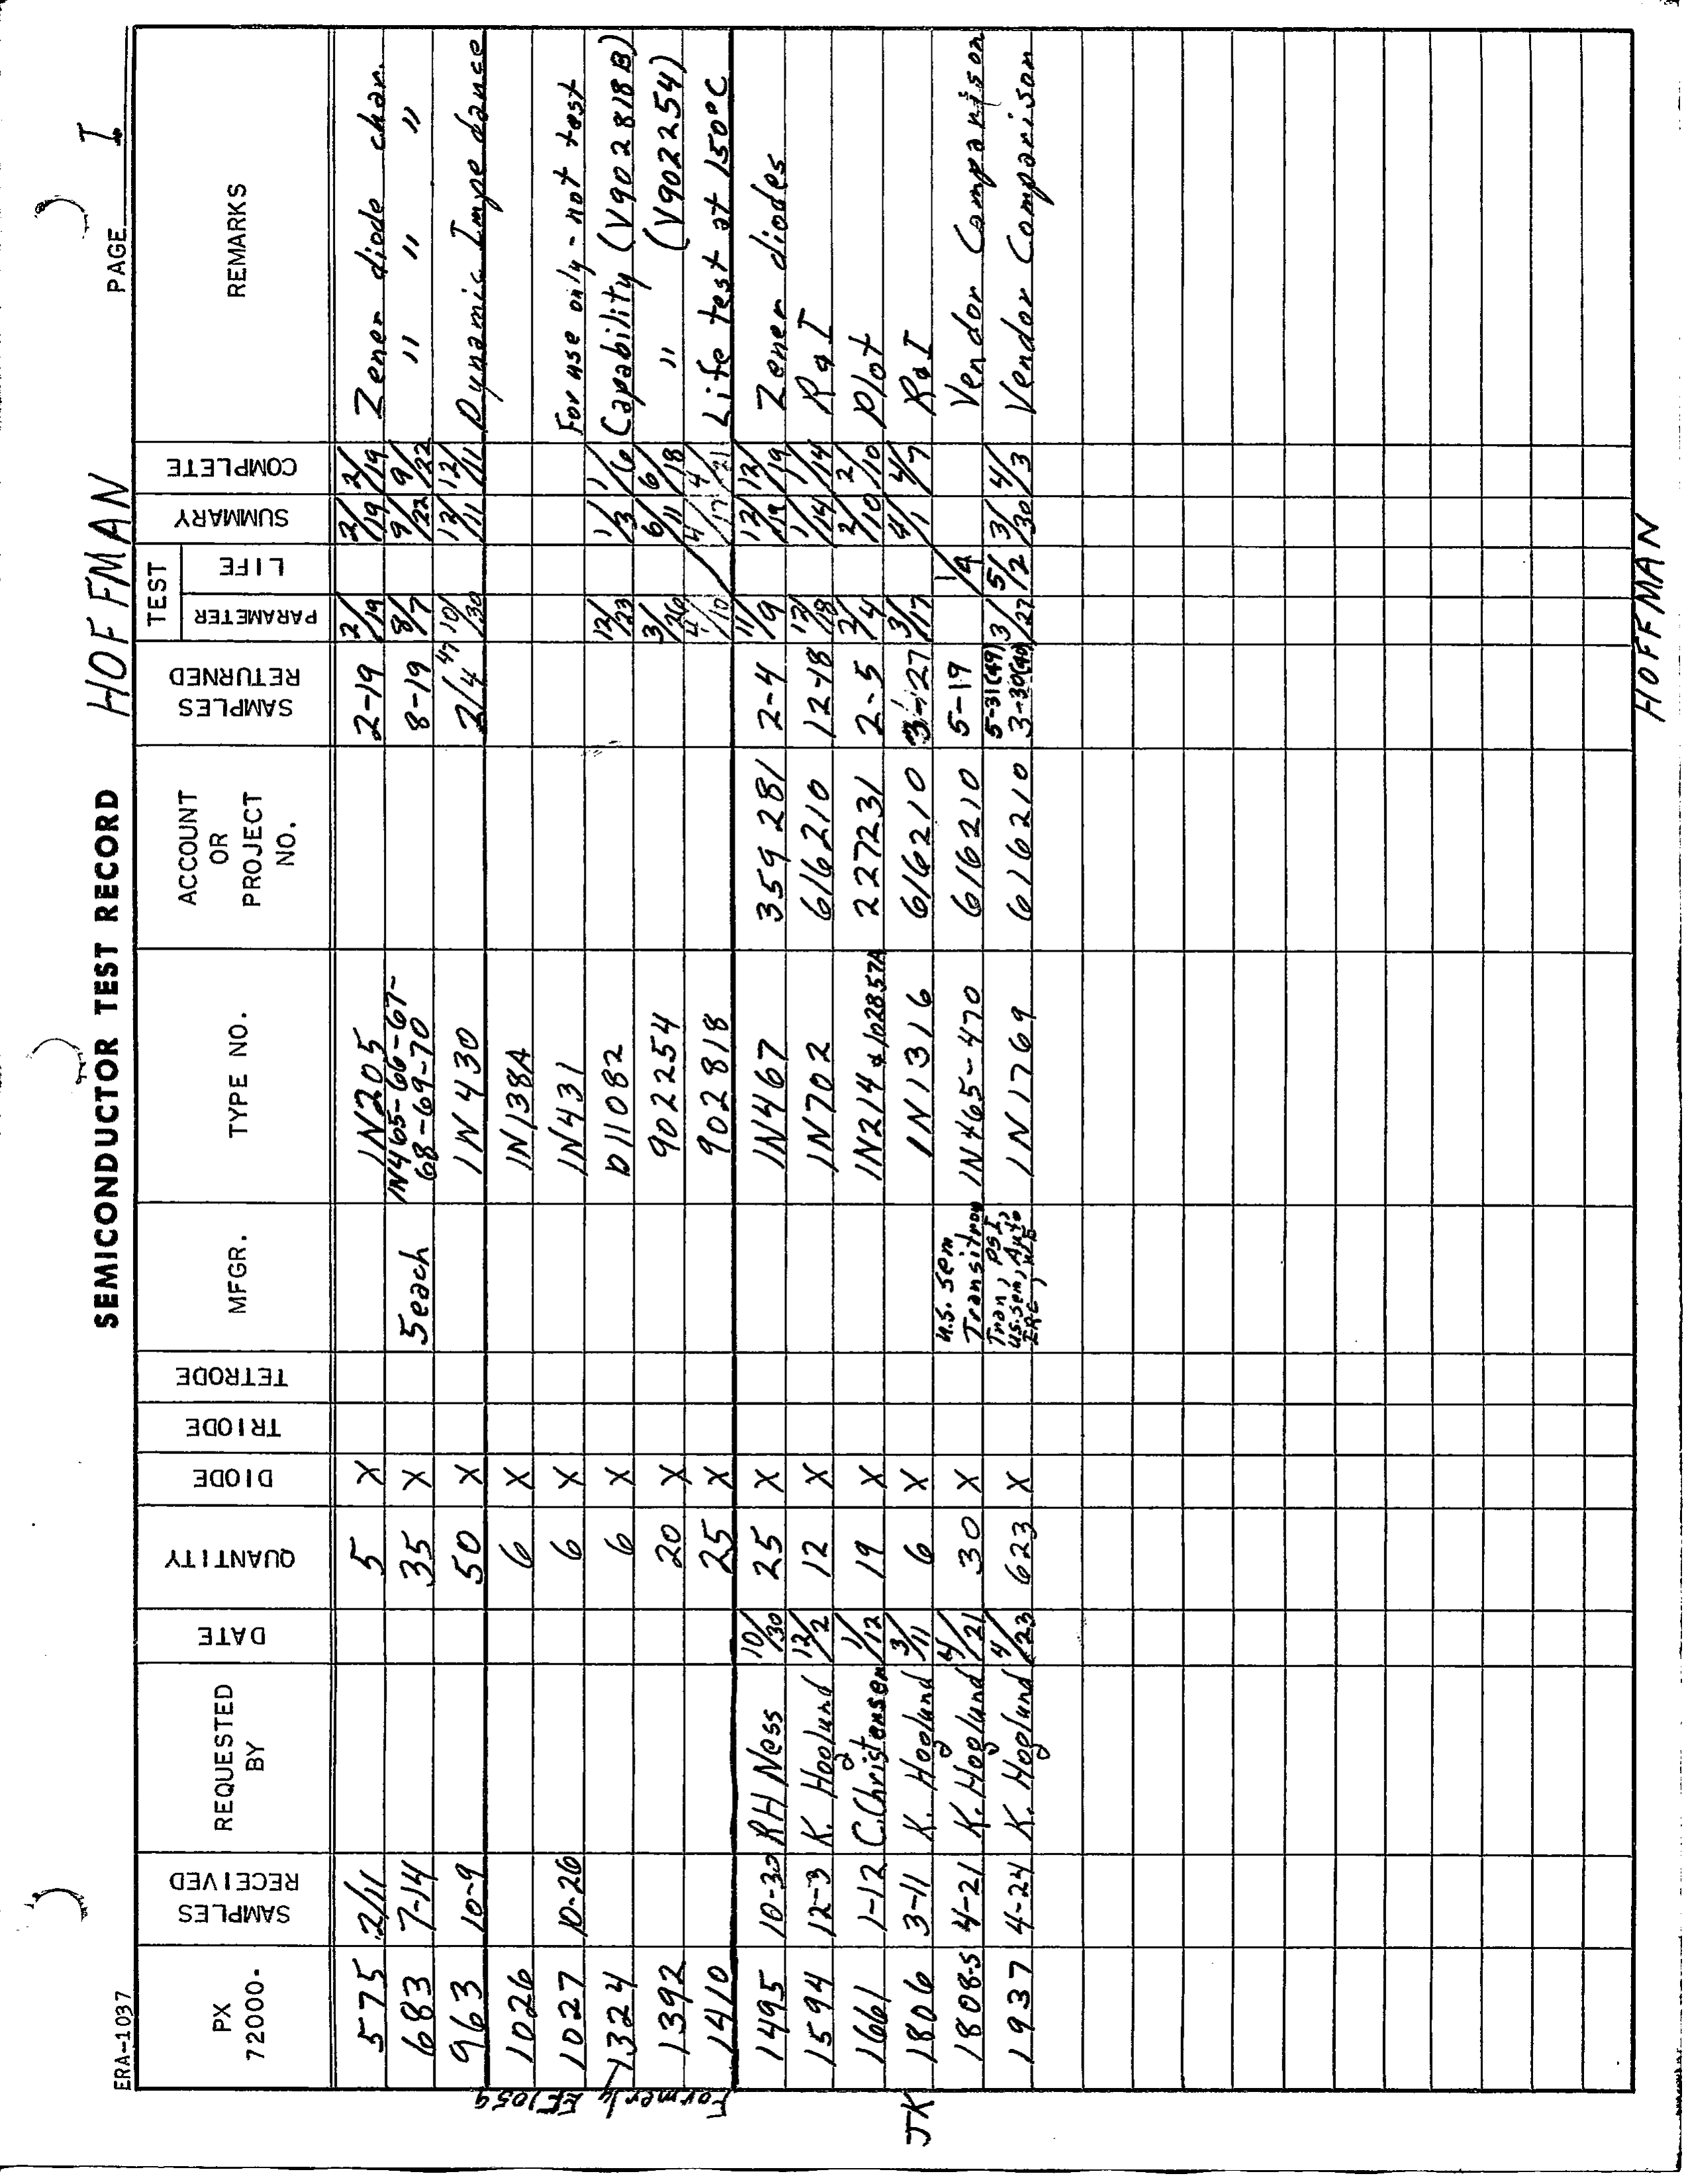 ERA-1037 SEMICONDUCTOR TEST RECORD HOFFMAN PAGE I
PX 72000. SAMPLES RECEIVED REQUESTED BY DATE QUANTITY DIODE TRIODE TETRODE MFGR. TYPE NO. ACCOUNT OR PROJECT NO. SAMPLES RETURNED TEST PARAMETER LIFE SUMMARY COMPLETE REMARKS
575 2/11 5 X 1N205 2-19 2/19 2/19 2/19 Zener diode char.
683 7-14 35 X 5 each 1N465-66-67-68-69-70 8-19 8/7 9/22 9/22 " " "
963 10-9 50 X 1N430 2/4 47 10/30 12/11 12/11 Dynamic Impedance
1026 6 X 1N138A
1027 10-26 6 X 1N431 For use only - not test
Formerly EF1059
1324 6 X D11082 12/23 1/3 1/6 Capability (V902818B)
1392 20 X 902254 3/26 6/11 6/18 " (V902254)
1410 25 X 902818 4/10 4/17 4/21 Life test at 150°C
1495 10-30 RH Ness 10/30 25 X 1N467 359281 2-4 11/9 12/19 12/19 Zener diodes
1594 12-3 K. Hoglund 12/2 12 X 1N702 616210 12-18 12/18 1/14 1/14 R&I
1661 1-12 C. Christensen 1/12 19 X 1N214 & 102857A 227231 2-5 2/4 2/10 2/10 Plot
JK 1806 3-11 K. Hoglund 3/11 6 X 1N1316 616210 3-27 3/17 4/1 4/7 R&I
1808-S 4-21 K. Hoglund 4/21 30 X U.S. Sem, Transitron 1N465-470 616210 5-19 1/4 Vendor Comparison
1937 4-24 K. Hoglund 4/23 623 X Tran, PSI, US. Sem, Auto, IRC, 1N1769 616210 5-31(49) 3-30(40) 3/27 5/2 3/30 4/3 Vendor Comparison
HOFFMAN